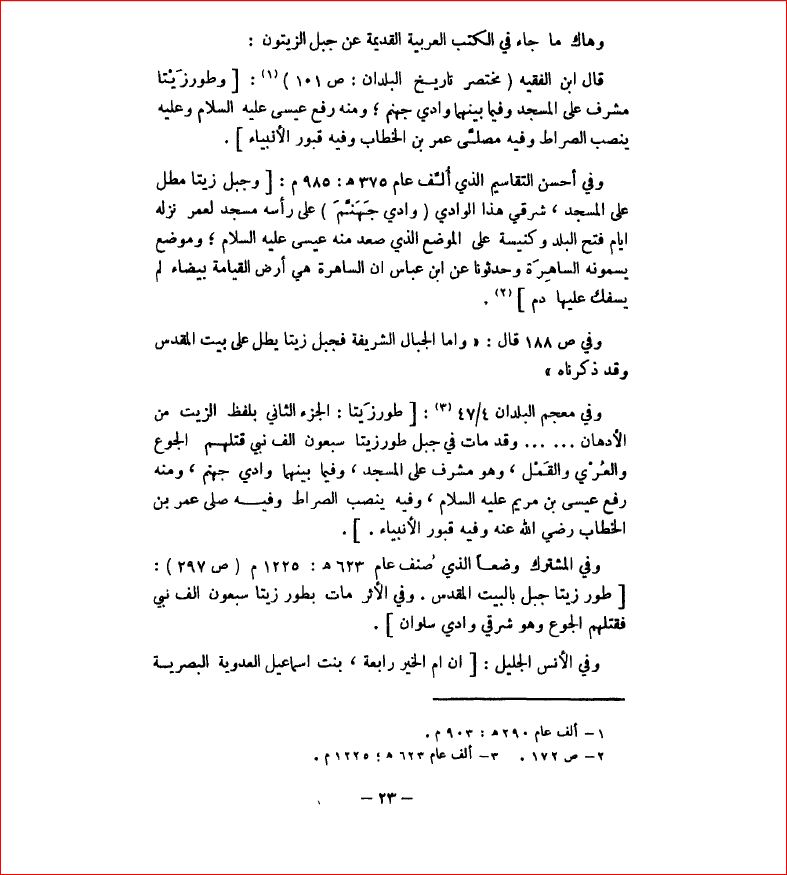 وهاك ما جاء في الكتب العربية القديمة عن جبل الزيتون :
قال ابن الفقيه ( مختصر تاريخ البلدان : ص ١٠١ ) (١) : [ وطورزَيْتا
مشرف على المسجد وفيما بينهما وادي جهنم ؛ ومنه رفع عيسى عليه السلام وعليه
ينصب الصراط وفيه مصلَّى عمر بن الخطاب وفيه قبور الأنبياء ] .
وفي أحسن التقاسيم الذي أُلّف عام ٣٧٥ ه : ٩٨٥ م : [ وجبل زيتا مطل
على المسجد ، شرقي هذا الوادي ( وادي جَهَنَّمَ ) على رأسه مسجد لعمر نزله
ايام فتح البلد وكنيسة على الموضع الذي صعد منه عيسى عليه السلام ؛ وموضع
يسمونه الساهِرَة وحدثونا عن ابن عباس ان الساهرة هي أرض القيامة بيضاء لم
يسفك عليها دم ] (٢) .
وفي ص ١٨٨ قال : « واما الجبال الشريفة فجبل زيتا يطل على بيت المقدس
وقد ذكرناه »
وفي معجم البلدان ٤٧/٤ (٣) : [ طورزَيتا : الجزء الثاني بلفظ الزيت من
الأدهان ... ... وقد مات في جبل طورزيتا سبعون الف نبي قتلهم الجوع
والعُرْي والقَمْل ، وهو مشرف على المسجد ، وفيما بينهما وادي جهنم ، ومنه
رفع عيسى بن مريم عليه السلام ، وفيه ينصب الصراط وفيه صلى عمر بن
الخطاب رضي الله عنه وفيه قبور الأنبياء . ] .
وفي المشترك وضعاً الذي صُنف عام ٦٢٣ ه : ١٢٢٥ م ( ص ٢٩٧ ) :
[ طور زيتا جبل بالبيت المقدس . وفي الأثر مات بطور زيتا سبعون الف نبي
فقتلهم الجوع وهو شرقي وادي سلوان ] .
وفي الأنس الجليل : [ ان ام الخير رابعة ، بنت اسماعيل العدوية البصرية
١– ألف عام ٢٩٠ ه : ٩٠٣ م .
٢– ص ١٧٢ . ٣– ألف عام ٦٢٣ ه ؛ ١٢٢٥ م .
– ٢٣ –